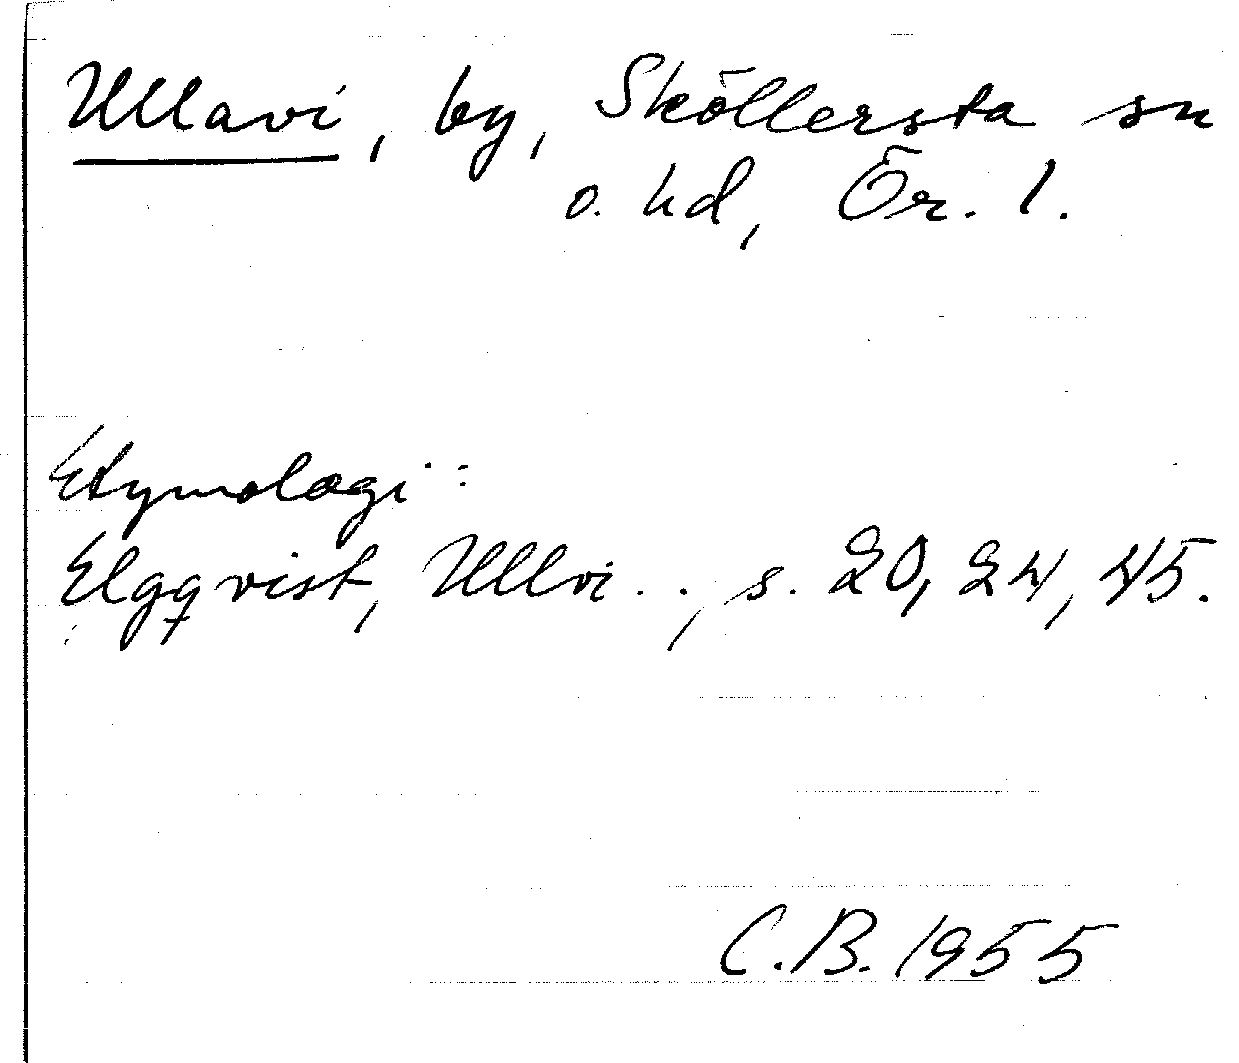 Ullavi, by, Sköllersta sn
o. hd, Ör. l.
Etymologi:
Elgqvist, Ullvi . ., s. 20, 24, 45.
C.B. 1955